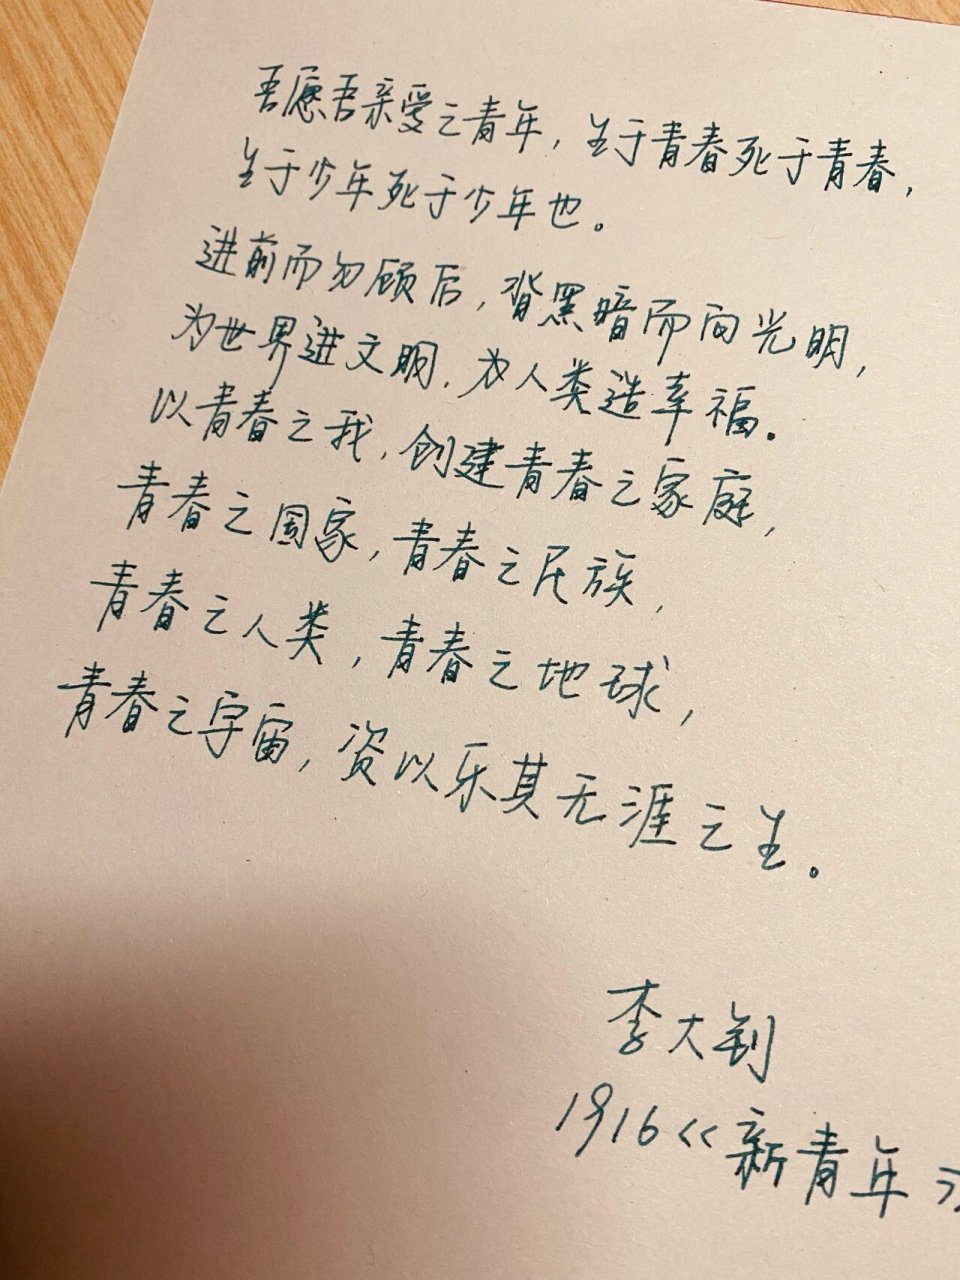 吾愿吾亲爱之青年，生于青春死于青春，
生于少年死于少年也。
进前而勿顾后，背黑暗而向光明，
为世界进文明，为人类造幸福。
以青春之我，创建青春之家庭，
青春之国家，青春之民族，
青春之人类，青春之地球，
青春之宇宙，资以乐其无涯之生。
李大钊
1916《新青年》